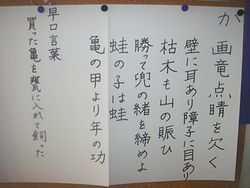 が
画竜点青を欠く
壁に耳あり障子に目あり
枯木も山の賑ひ
勝って兜の緒を締めよ
蛙の子は蛙
亀の甲より年の功
早口言葉
買った亀を甕に入れて飼った